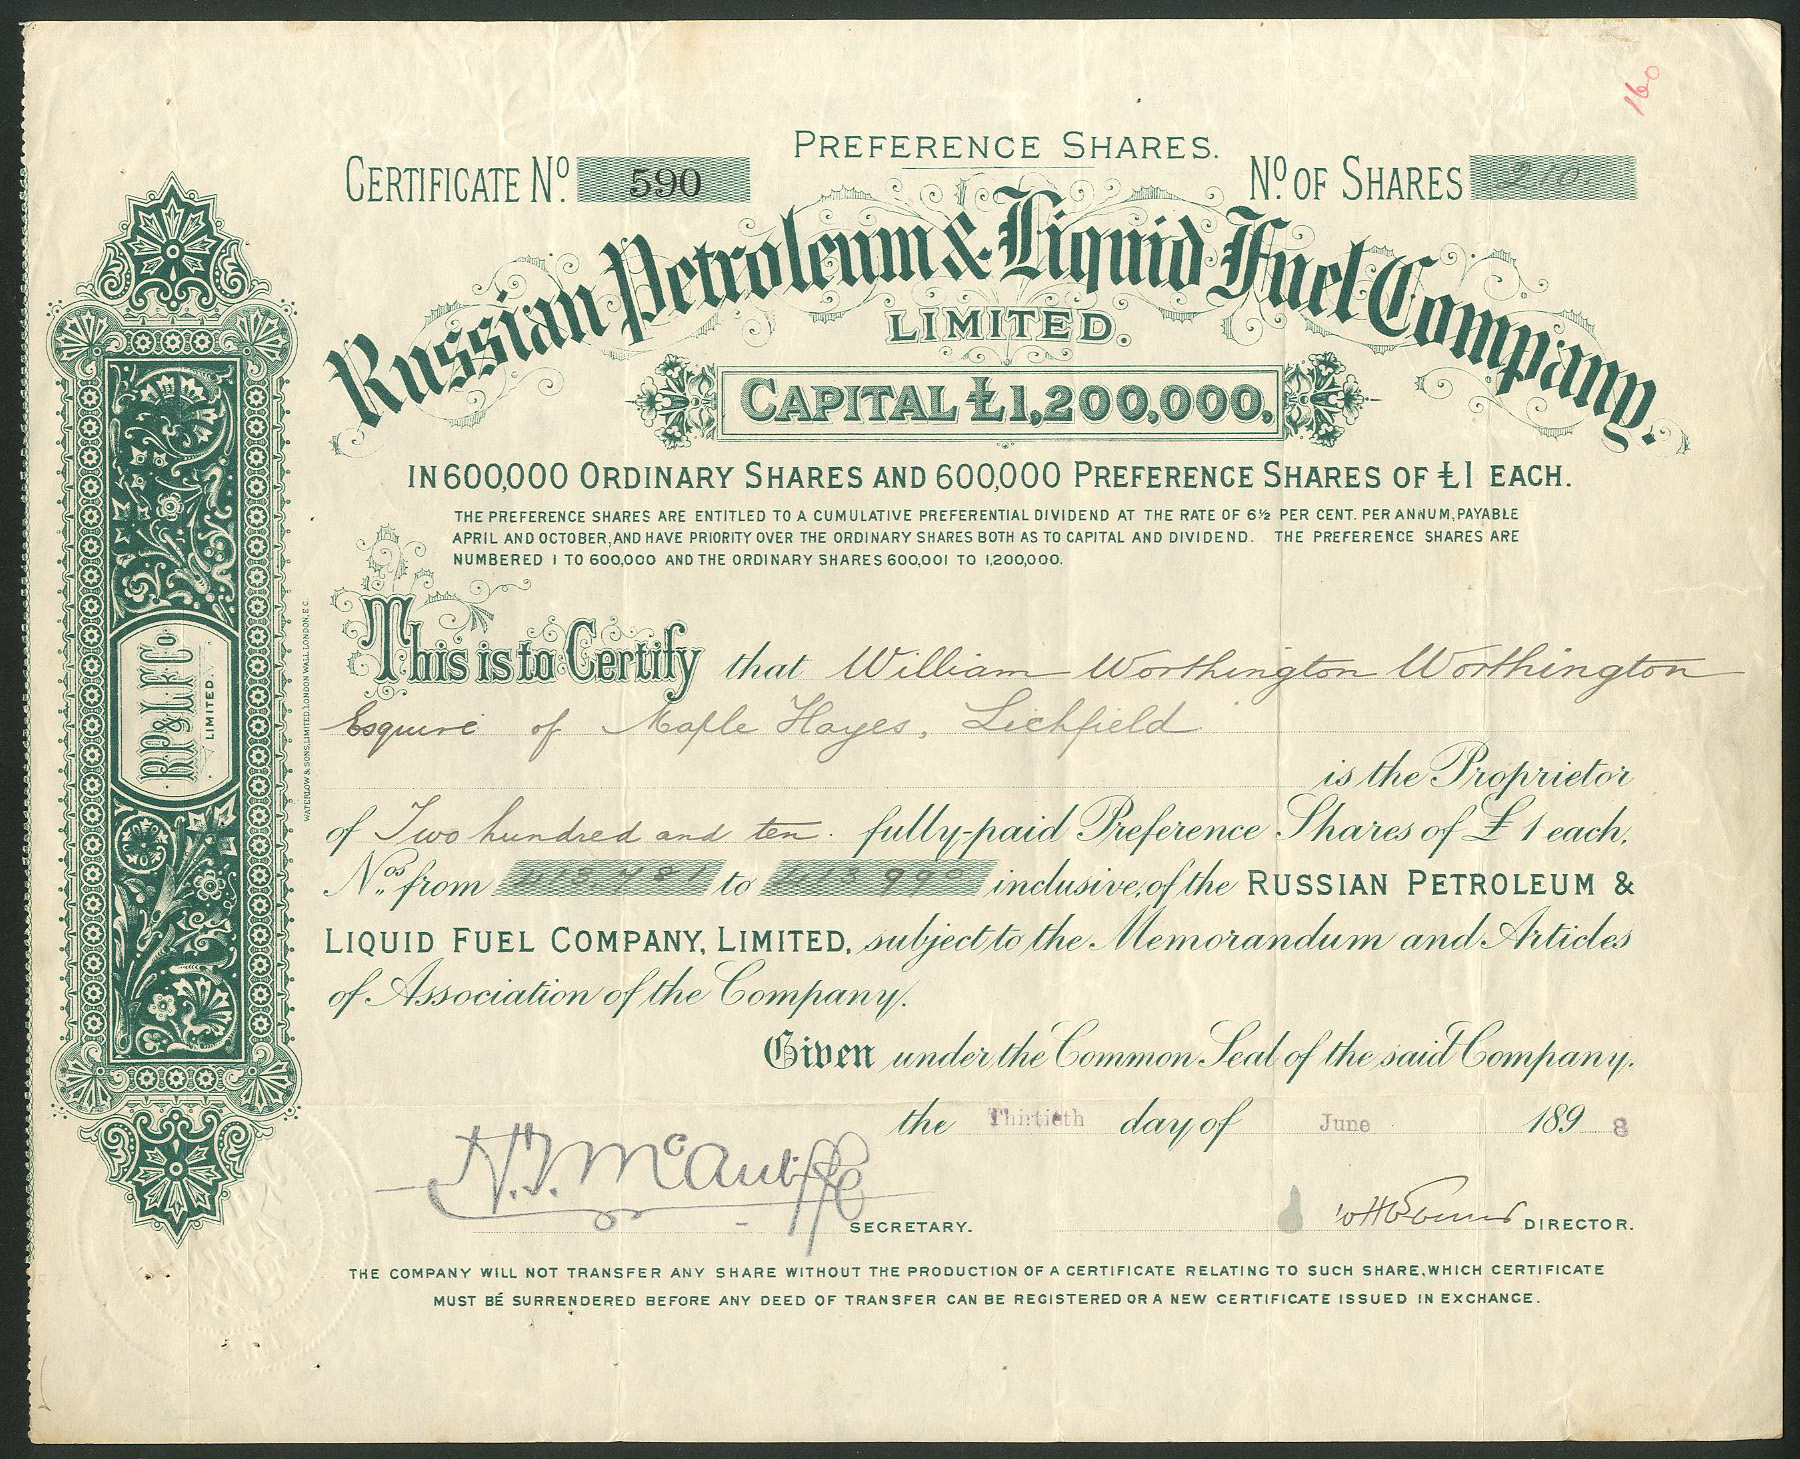 160
PREFERENCE SHARES.
CERTIFICATE No. 590
No. OF SHARES 210
Russian Petroleum & Liquid Fuel Company,
LIMITED.
CAPITAL £1,200,000,
IN 600,000 ORDINARY SHARES AND 600,000 PREFERENCE SHARES OF £1 EACH.
THE PREFERENCE SHARES ARE ENTITLED TO A CUMULATIVE PREFERENTIAL DIVIDEND AT THE RATE OF 6½ PER CENT. PER ANNUM, PAYABLE
APRIL AND OCTOBER, AND HAVE PRIORITY OVER THE ORDINARY SHARES BOTH AS TO CAPITAL AND DIVIDEND. THE PREFERENCE SHARES ARE
NUMBERED 1 TO 600,000 AND THE ORDINARY SHARES 600,001 TO 1,200,000.
This is to Certify that William Worthington Worthington
Esquire of Maple Hayes, Lichfield
is the Proprietor
of Two hundred and ten. fully-paid Preference Shares of £1 each,
Nos. from 413,781 to inclusive, of the RUSSIAN PETROLEUM &
LIQUID FUEL COMPANY, LIMITED, subject to the Memorandum and Articles
of Association of the Company.
Given under the Common Seal of the said Company.
the Thirtieth day of June 1898
SECRETARY.
DIRECTOR.
THE COMPANY WILL NOT TRANSFER ANY SHARE WITHOUT THE PRODUCTION OF A CERTIFICATE RELATING TO SUCH SHARE, WHICH CERTIFICATE
MUST BE SURRENDERED BEFORE ANY DEED OF TRANSFER CAN BE REGISTERED OR A NEW CERTIFICATE ISSUED IN EXCHANGE.
RP & L.F. Co
LIMITED.
WATERLOW & SONS, LIMITED, LONDON WALL, LONDON, E.C.